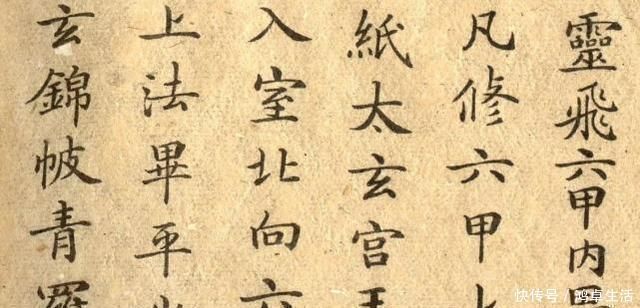 靈飛六甲内
凡修六甲
紙太玄宮玉
入室北向六
上法畢平
玄錦帔青羅
快传号/鸿卓生活